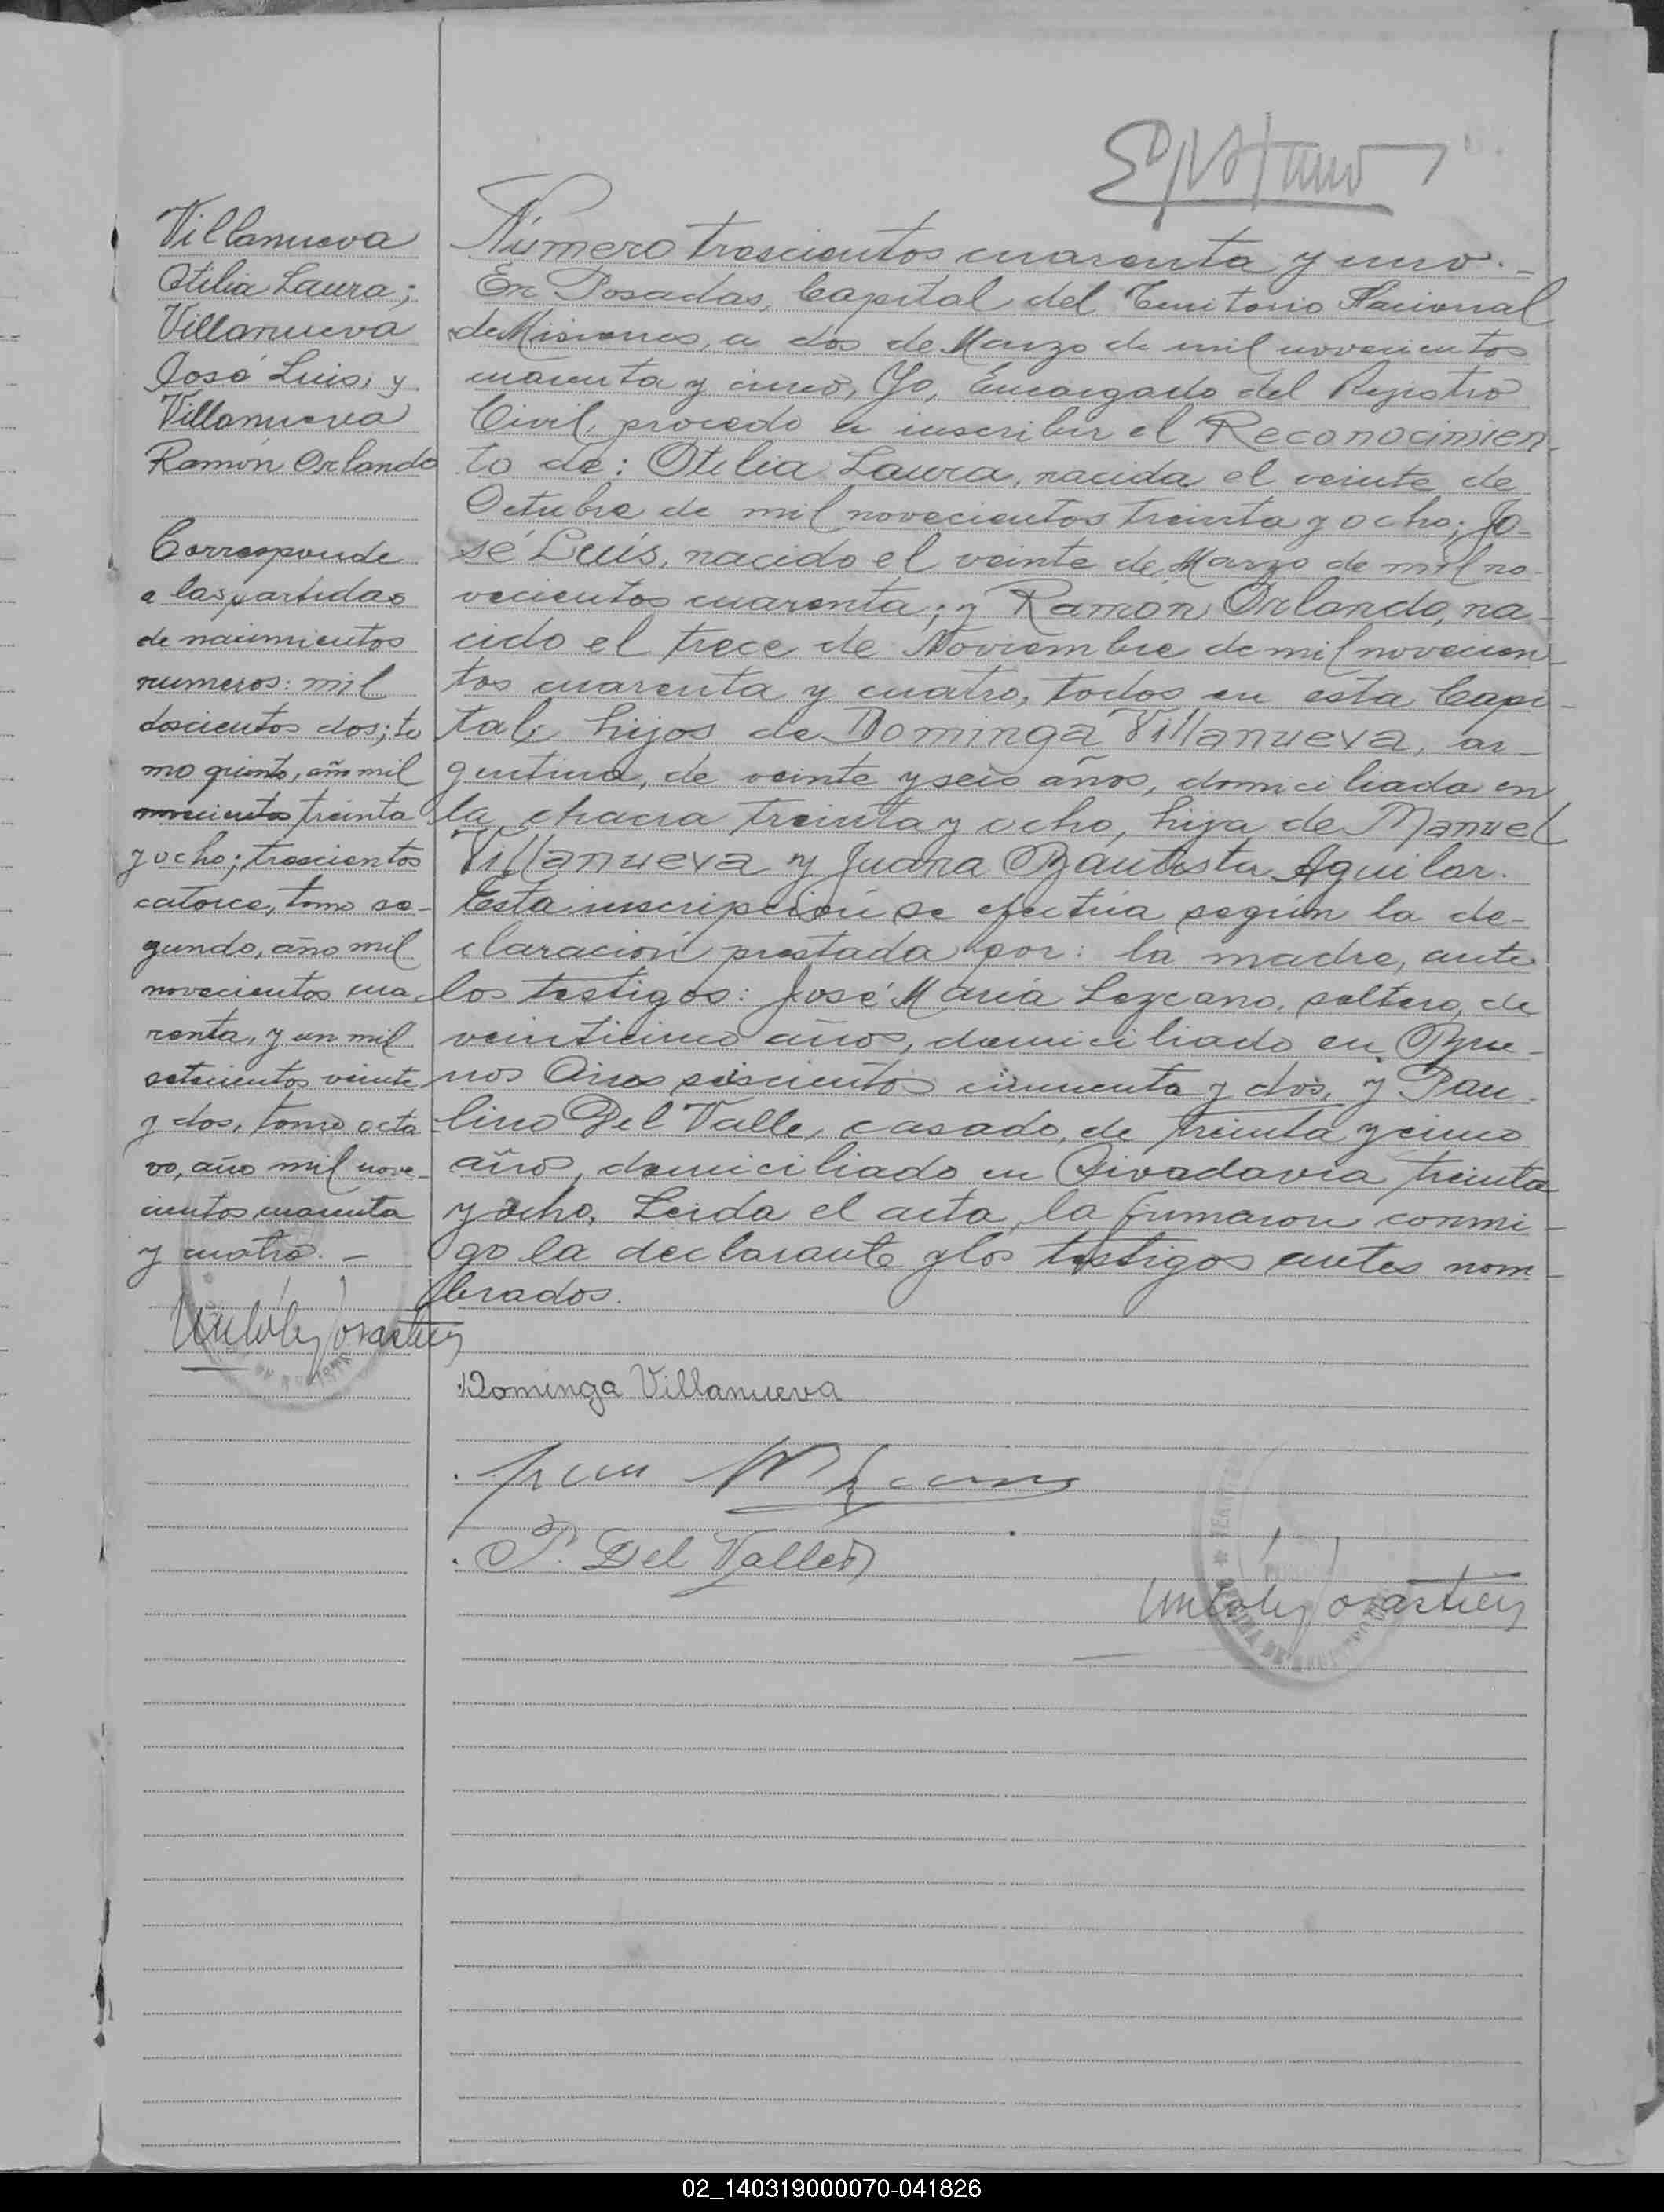 Villanueva
Otilia Laura;
Villanueva
José Luis, y
Villanueva
Ramón Orlando
Corresponde
a las partidas
de nacimientos
numeros: mil
doscientos dos; to
mo quinto, año mil
novecientos treinta
y ocho; trescientos
catorce, tomo se-
gundo, año mil
novecientos cua-
renta, y un mil
setecientos veinte
y dos, tomo octa
vo, año mil nove-
cientos cuarenta
y cuatro. -
Número trescientos cuarenta y uno. -
En Posadas, Capital del Territorio Nacional
de Misiones, a dos de Marzo de mil novecientos
cuarenta y cinco, Yo, Encargado del Registro
Civil, procedo a inscribir el Reconocimien-
to de: Otilia Laura, nacida el veinte de
Octubre de mil novecientos treinta y ocho; Jo-
sé Luis, nacido el veinte de Marzo de mil no-
vecientos cuarenta; y Ramon Orlando, na-
cido el trece de Noviembre de mil novecien-
tos cuarenta y cuatro, todos en esta Capi-
tal; hijos de Dominga Villanueva, ar-
gentina, de veinte y seis años, domiciliada en
la chacra treinta y ocho, hija de Manuel
Villanueva y Juana Bautista Aguilar.
Esta inscripción se efectúa según la de-
claración prestada por: la madre, ante
los testigos: José María Lezcano, soltero, de
veinticinco años, domiciliado en Bue-
nos Aires seiscientos cincuenta y dos, y Pau-
lino Del Valle, casado, de treinta y cinco
años, domiciliado en Rivadavia treinta
y ocho. Leida el acta, la firmaron conmi-
go la declarante y los testigos antes nom-
brados.
Dominga Villanueva
P. Del Valle
02_140319000070-041826